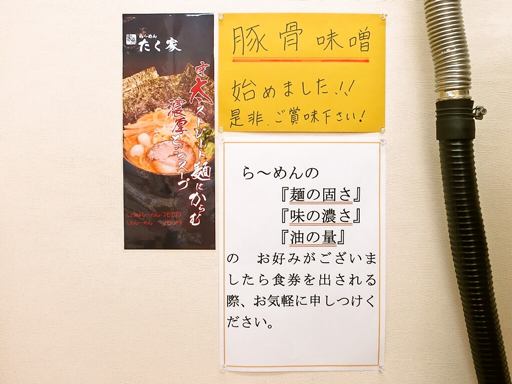 らーめん
たく家
太
麺にからむ
濃厚
スープ
豚骨味噌
始めました!!
是非、ご賞味下さい!
ら〜めんの
『麺の固さ』
『味の濃さ』
『油の量』
の　お好みがございま
したら食券を出される
際、お気軽に申しつけく
ださい。